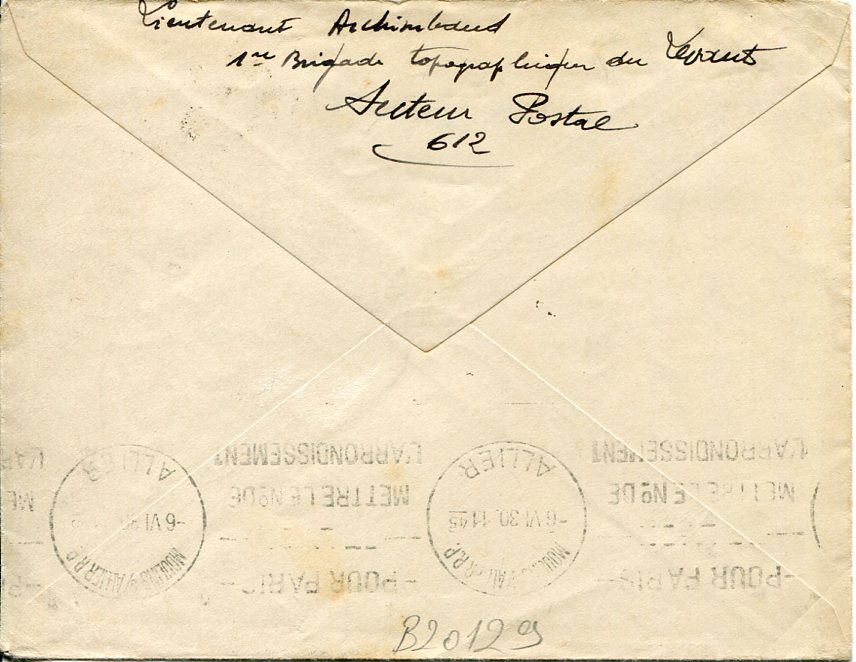 Lieutenant Archimbaud
1re Brigade topographique du Levant
Secteur Postal
612
L'ARRONDISSEMENT
METTRE LE Nº DE
-POUR PARIS-
MOULINS S/ALLIER R.P.
-6 VI 30
ALLIER
L'ARRONDISSEMENT
METTRE LE Nº DE
-POUR PARIS-
MOULINS S/ALLIER R.P.
-6 VI 30. 11 45
ALLIER
B2012